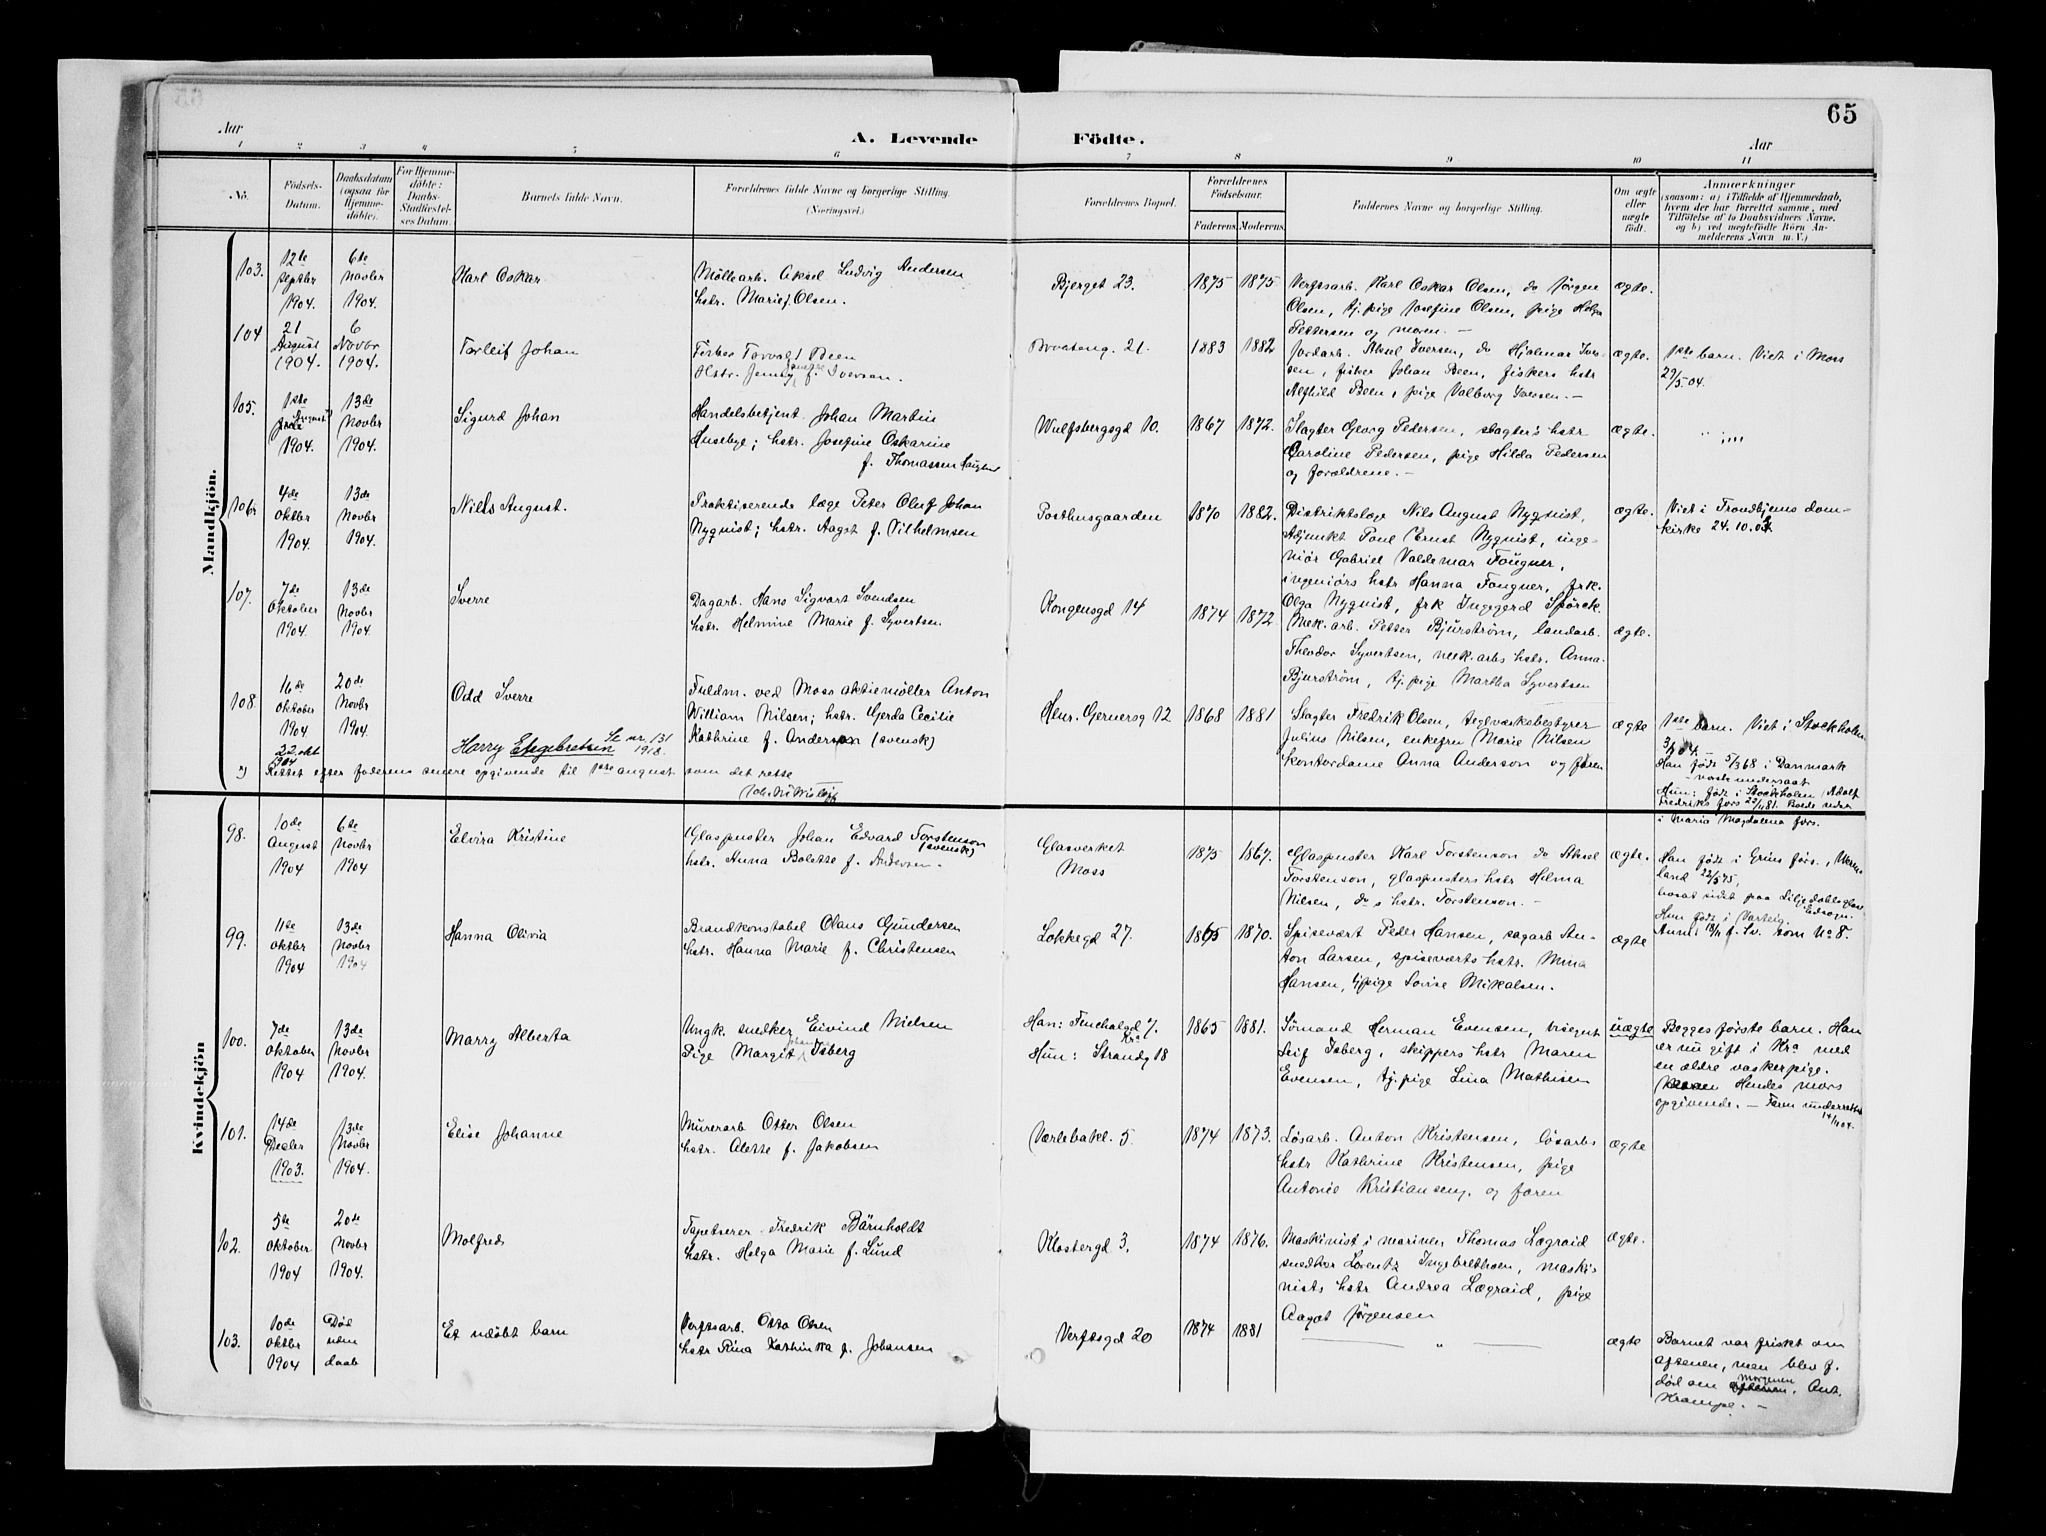 65
Aar
A. Levende
Födte.
Aar
1 2 3 4 5 6 7 8 9 10 11
No.
Födsels-
Datum.
Daabsdatum
(ogsaa for
Hjemme-
döbte).
For Hjemme-
döbte:
Daabs-
Stadfæstel-
ses Datum.
Barnets fulde Navn.
Forældrenes fulde Navne og borgerlige Stilling.
(Næringsvei.)
Forældrenes Bopæl.
Forældrenes
Födselsaar.
Faderens. Moderens.
Faddernes Navne og borgerlige Stilling.
Om ægte
eller
uægte
födt.
Anmærkninger
(saasom: a) i Tilfælde af Hjemmedaab,
hvem der har forrettet samme, med
Tilföielse af to Daabsvidners Navne,
og b) ved uægtefödte Börn An-
melderens Navn m. V.)
Mandkjön.
103.
12te
septbr
1904.
6te
novbr
1904.
Karl Oskar
Möllearb. Aksel Ludvig Andersen
hstr. Marie f. Olsen.
Bjerget 23.
1875 1875
Verftsarb. Karl Oskar Olsen, do Jörgen
Olsen, tj. pige Josefine Olsen, pige Helga
Pettersen og moren. —
ægte.
104
21
August
1904.
6
Novbr
1904.
Torleif Johan
Fisker Torvald Been
Hstr. Jenny f. Iversen.
Brosteng. 21.
1883 1882
Jordarb. Aksel Iversen, do Hjalmar Iver-
sen, fisker Johan Been, fiskers hstr
Alfhild Been, pige Valborg Iversen. —
ægte.
1ste barn. Viet i Moss
29/5.04.
105.
1ste
August x)
1904.
13de
Novbr
1904.
Sigurd Johan
Handelsbetjent Johan Martin
Husebye; hstr. Josefine Oskarine
f. Thomassen Haugbro
Wulfsbergsgd 10.
1867 1872.
Slagter Georg Pedersen, slagter's hstr
Caroline Pedersen, pige Hilda Pedersen
og forældrene. —
ægte.
106.
4de
oktbr
1904.
13de
Novbr
1904.
Nills August.
Praktiserende læge Peter Oluf Johan
Nyquist; hstr. Aagot f. Vilhelmsen
Posthusgaarden
1870 1882.
Distriktslæge Nils August Nyquist,
Adjunkt Poul Ernst Nyquist, inge-
niör Gabriel Valdemar Fougner,
ingeniörs hstr Hanna Fougner, frk.
Olga Nyquist, frk Ingegerd Spörck.
ægte.
Viet i Trondhjems dom-
kirke 24.10.03
107.
7de
Oktober
1904.
13de
Novbr
1904.
Sverre
Dagarb. Hans Sigvart Svendsen
hstr. Helmine Marie f. Syvertsen.
Kongensgd 14
1874 1872
Mek. arb. Petter Bjurström, landarb.
Theodor Syvertsen, mek. arbs hstr. Anna
Bjurström, tj. pige Martha Syvertsen
ægte.
108.
16de
oktober
1904
20de
Novbr
1904.
Odd Sverre
Fuldm. ved Moss aktiemöller Anton
William Nilsen; hstr. Gerda Cecilie
Kathrine f. Anderson (svensk)
Henr. Gernersg 12
1868 1881
Slagter Fredrik Olsen, teglværksbestyrer
Julius Nilsen, enkefru Marie Nilsen
kontordame Anna Anderson og faren
ægte
1ste barn. Viet i Stockholm
Han född 5/3 68 i Danmark
— norsk undersaat
Hun: född i Stockholm (Adolf
Fredriks fors 22/11 81. Boede sidst
i Maria Magdalena fors.
22 okt
1904
Harry Engebretsen
Se nr. 131
1918.
x) Rettet efter faderens senere opgivende til 1ste august som det rette
Kvindekjön
98.
10de
August
1904
6te
Novbr
1904
Elvira Kristine
Glaspuster Johan Edvard Torstenson
(svensk)
hstr. Anna Bolette f. Andersen.
Glasverket
Moss
1875 1867.
Glaspuster Karl Torstenson do Aksel
Torstenson, glaspusters hstr Hilma
Nilsen, do s hstr. Torstenson. —
ægte.
Han född i Grüns förs., Werm-
land 22/5 75,
bosat sidst paa Liljedahls glas
Edsogn.
Hun född i Varteig.
Anm. 18/11 f. Sv. som No 8.
99.
11te
oktbr
1904
13de
Novbr
1904
Hanna Olivia
Brandkonstabel Olaus Gundersen
hstr. Hanna Marie f. Christensen
Lokkegd 27.
1865 1870.
Spisevært Peder Hansen, sagarb An-
ton Larsen, spiseværts hstr. Mina
Hansen, tj.pige Lovise Mikalsen.
ægte
100.
7de
Oktober
1904
13de
Novbr
1904.
Marry Alberta
Ungk. snedker Eivind Nielsen
Pige Margit Isberg
Han: Fenchalgd 7.
Kra
Hun: Strandg 18
1865 1881.
Sömand Herman Evensen, visegut
Leif Isberg, skippers hstr Maren
Evensen, tj. pige Lina Mathisen
uægte
Begges förste barn. Han
er nu gift i Kra med
en ældre vaskerpige.
Hendes mors
opgivende. — Faren underrettet
14/11 04.
101.
14de
Decbr
1903.
13de
Novbr
1904.
Elise Johanne
Murerarb Otter Olsen
hstr. Alette f. Jakobsen
Værlebakl. 5.
1874 1873.
Lösarb. Anton Kristensen, lösarbs
hstr Kathrine Kristensen, pige
Antonie Kristiansen, og faren
ægte
102.
5te
oktober
1904
20de
Novbr
1904.
Molfred
Tapetserer Fredrik Bärnholdt
hstr. Helga Marie f. Lund
Klostergd 3.
1874 1876.
Maskinist i marinen Thomas Lægraid
snedker Lorentz Ingebrethsen, maski-
nists hstr Andrea Lægraid, pige
Aagot Jörgensen
ægte.
103.
10de
oktbr
1904
Död
uden
daab
Et udöbt barn
Verftsarb. Otto Olsen
hstr Rina Kathinka f. Johansen
Verftsgd 20
1874 1881
— " —
ægte
Barnet var friskt om
aftenen, men blev f.
död om morgenen. Ant.
Krampe. —